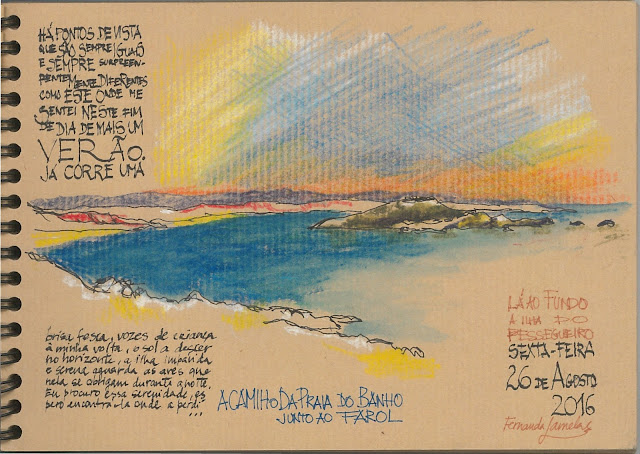 HÁ PONTOS DE VISTA
QUE SÃO SEMPRE IGUAIS
E SEMPRE SURPREEN-
DENTEMENTE DIFERENTES
COMO ESTE ONDE ME
SENTEI NESTE FIM
DE DIA DE MAIS UM
VERÃO.
JÁ CORRE UMA
brisa fosca, vozes de criança
à minha volta, o sol a descer
no horizonte, a ilha impávida
e serena aguarda as aves que
nela se abrigam durante a noite.
Eu procuro essa serenidade, es
pero encontrá-la onde a perdi
...
A CAMINHO DA PRAIA DO BANHO
JUNTO AO FAROL
LÁ AO FUNDO
A ILHA DO
PESSEGUEIRO
SEXTA-FEIRA
26 DE AGOSTO
2016
Fernanda Lamelas